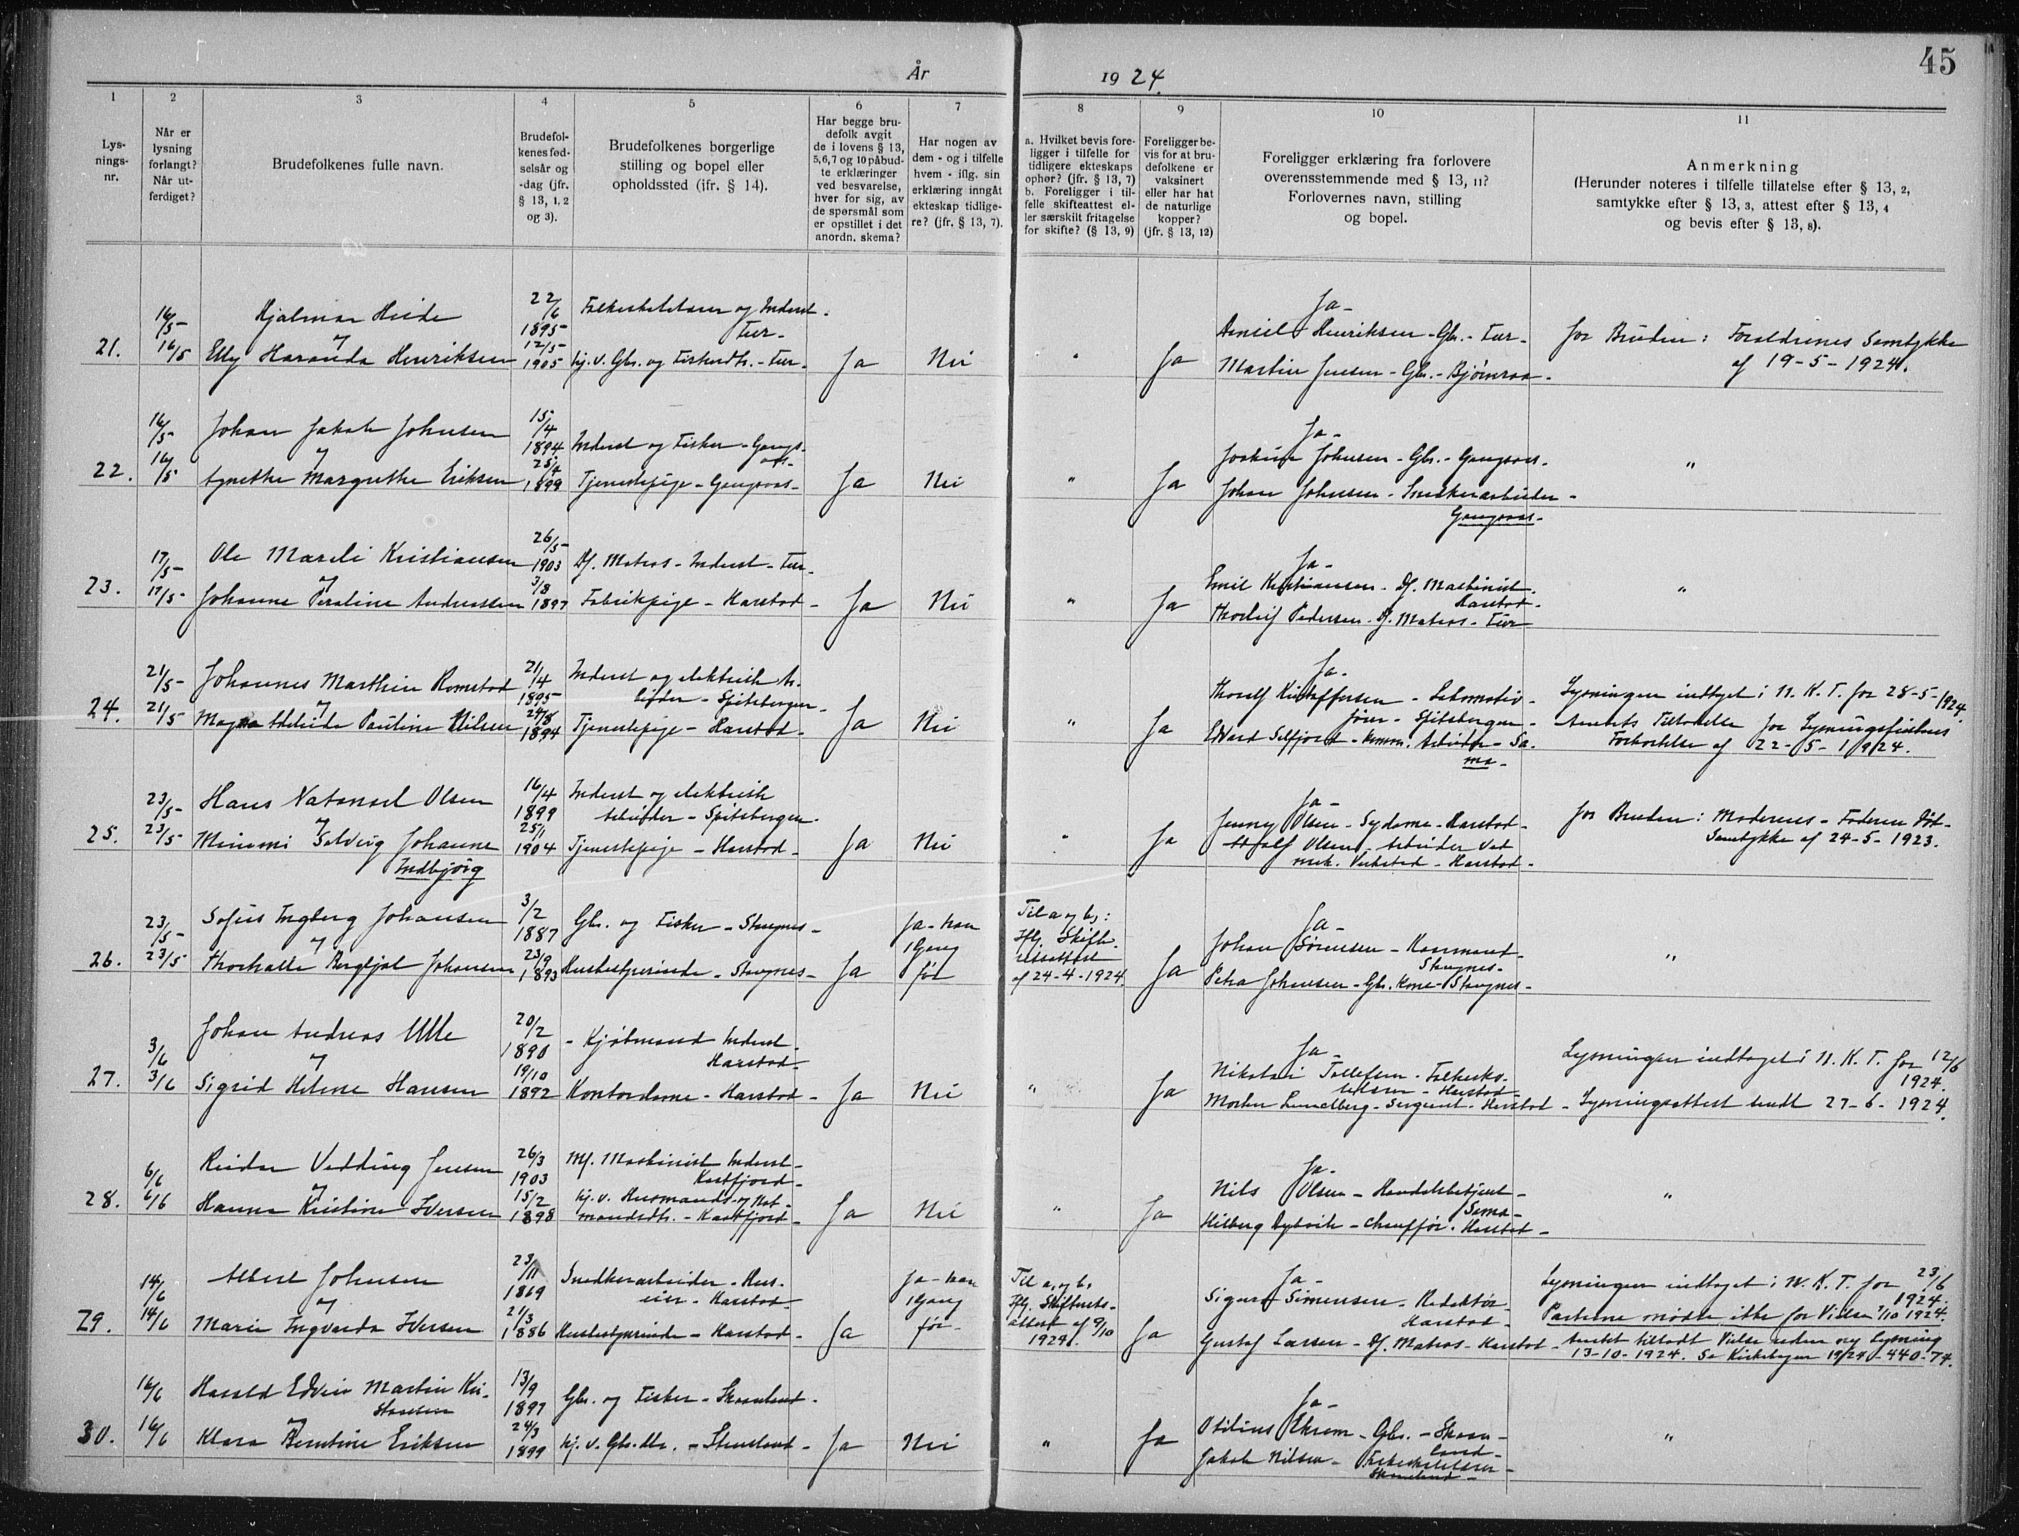 45
År 1924.
1
2
3
4
5
6
7
8
9
10
11
Lys-
nings-
nr.
Når er
lysning
forlangt?
Når ut-
ferdiget?
Brudefolkenes fulle navn.
Brudefol-
kenes fød-
selsår og
-dag (jfr.
§ 13, 1, 2
og 3).
Brudefolkenes borgerlige
stilling og bopel eller
opholdssted (jfr. § 14).
Har begge bru-
defolk avgit
de i lovens § 13,
5,6,7 og 10 påbud-
te erklæringer
ved besvarelse,
hver for sig, av
de spørsmål som
er opstillet i det
anordn. skema?
Har nogen av
dem - og i tilfelle
hvem - iflg. sin
erklæring inngått
ekteskap tidlige-
re? (jfr. § 13, 7).
a. Hvilket bevis fore-
ligger i tilfelle for
tidligere ekteskaps
ophør? (jfr. § 13, 7)
b. Foreligger i til-
felle skifteattest el-
ler særskilt fritagelse
for skifte? (§ 13, 9)
Foreligger be-
vis for at bru-
defolkene er
vaksinert
eller har hat
de naturlige
kopper?
(jfr. § 13, 12)
Foreligger erklæring fra forlovere
overensstemmende med § 13, 11?
Forlovernes navn, stilling
og bopel.
Anmerkning
(Herunder noteres i tilfelle tillatelse efter § 13, 2,
samtykke efter § 13, 3, attest efter § 13, 4
og bevis efter § 13, 8).
21.
16/5
16/5
Hjalmar Heide
og
Elly Haranda Henriksen
22/6
1895
12/5
1905
Folkeskolelærer og Inderst
hj. v. Gbr. og Fiskerdtr.
Ja
Nei
"
Ja
Ja
Daniel Henriksen - Gbr.
Martin Jensen - Gbr. -
for Bruden: Foreldrenes Samtykke
af 19-5-1924.
22.
16/5
16/5
Johan Jakob Johnsen
og
Agnethe Margrethe Eriksen
15/4
1894
25/4
1899
Inderst og Fisker - Gangs-
aas
Tjenestepige - Gangsaas
Ja
Nei
"
Ja
Ja
Joakim Johnsen - Gbr. - Gangsaas
Johan Johnsen - Snekkerarbeider -
Gangsaas
"
23.
17/5
17/5
Ole Mareli Kristiansen
og
Johanne Peraline Andreassen
26/5
1903
3/8
1897
Df. Matros - Inderst
Fabrikpige - Harstad
Ja
Nei
"
Ja
Ja
Emil Kristiansen - Df. Maskinist
Harstad
Thorleif Pedersen - Df. Matros
"
24.
21/5
21/5
Johannes Marthin Romstad
og
Magna Adeleide Pauline Nilsen
21/4
1895
24/8
1894
Inderst og elektrisk Ar-
beider - Spitsbergen
Tjenestepige - Harstad
Ja
Nei
"
Ja
Ja
Thoralf Kristoffersen - Lokomotiv-
fører - Spitsbergen
Edvard Selfjord - Komm. Arbeider - Sa-
ma
Lysningen indtaget i N. K. T. for 28-5-1924.
Amtets Tilladelse for Lysningsfristens
Forkortelse af 22-5-1924.
25.
23/5
23/5
Hans Natanael Olsen
og
Mimmi Solveig Johanne
Indbjørg
16/4
1899
25/1
1904
Inderst og elektrisk
Arbeider - Spitsbergen
Tjenestepige - Harstad
Ja
Nei
"
Ja
Ja
Jenny Olsen - Sydame - Harstad
Adolf Olsen - Arbeider ved
mek. Verksted - Harstad
for Bruden: Moderens - Faderen Død -
Samtykke af 24-5-1923.
26.
23/5
23/5
Sofus Ingberg Johansen
og
Thorhalle Bergljot Johansen
3/2
1887
23/9
1893
Gbr. og Fisker - Stangnes
Husbestyrerinde - Stangnes
Ja
Ja - han
1 Gang
før
Til a og b:
Iflg. Skifte-
rettsattest
af 24-4-1924.
Ja
Ja
Johan Sørensen - Kaarmand
Stangnes
Petra Johansen - Gbr. Kone - Stangnes
"
27.
3/6
3/6
Johan Andreas Ulle
og
Sigrid Helene Hansen
20/2
1890
19/10
1892
Kjøbmand Inderst
Harstad
Kontordame - Harstad
Ja
Nei
"
Ja
Ja
Nikolai Tollefsen - Folkesko-
lelærer - Harstad
Morten Lundberg - Sergeant - Harstad
Lysningen indtaget i N. K. T. for 12/6
1924.
Lysningsattest sendt 27-6-1924.
28.
6/6
6/6
Reidar Vedding Jensen
og
Hanna Kristine Iversen
26/3
1903
15/2
1898
Mf. Maskinist Inderst
Kasfjord
hj. v. Husmands- og Not-
mandsdtr. - Kasfjord
Ja
Nei
"
Ja
Ja
Nils Olsen - Handelsbetjent
Sama
Hilberg Dybvik - Chauffør - Harstad
"
29.
14/6
14/6
Albert Johnsen
og
Marie Ingvarda Iversen
23/11
1869
21/3
1886
Snedkerarbeider - Hus-
eier - Harstad
Husbestyrerinde - Harstad
Ja
Ja - han
1 Gang
før
Til a og b,
Iflg. Skifterets-
attest af 9/10
1924.
Ja
Ja
Sigurd Simensen - Redaktør
Harstad
Gustaf Larsen - Df. Matros - Harstad
Lysningen indtaget i N. K. T. for 23/6
1924.
Parterne mødte ikke for Vielsen 7/10 1924.
Amtet tilladt Vielse uden ny Lysning
13-10-1924. Se Kirkebogen 19/24 - 440 - 74.
30.
16/6
16/6
Harald Edvin Martin Kri-
stiansen
og
Klara Berntine Eriksen
13/9
1897
24/3
1899
Gbr. og Fisker - Skaanland
hj. v. Gbr.dtr.
Ja
Nei
"
Ja
Ja
Otilius Ekrem - Gbr. - Skaan-
land
Jakob Nilsen - Folkeskolelærer
Skaanland
"